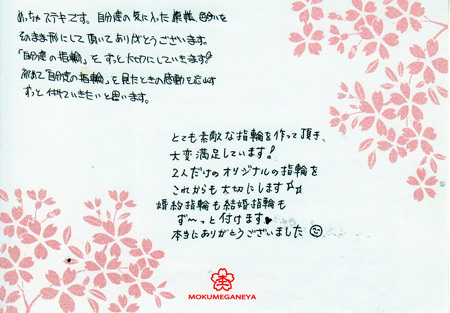 めっちゃステキです。自分達の気に入った模様、色あいを
そのまま形にして頂いてありがとうございます。
「自分達の指輪」を ずっと大切にしていきます!
初めて「自分達の指輪」を見たときの感動を忘れず
ずっと付けていきたいと思います。
とても素敵な指輪を作って頂き、
大変満足しています!
2人だけのオリジナルの指輪を
これからも大切にします
婚約指輪も結婚指輪も
ず〜っと付けます♥
本当にありがとうございました
MOKUMEGANEYA